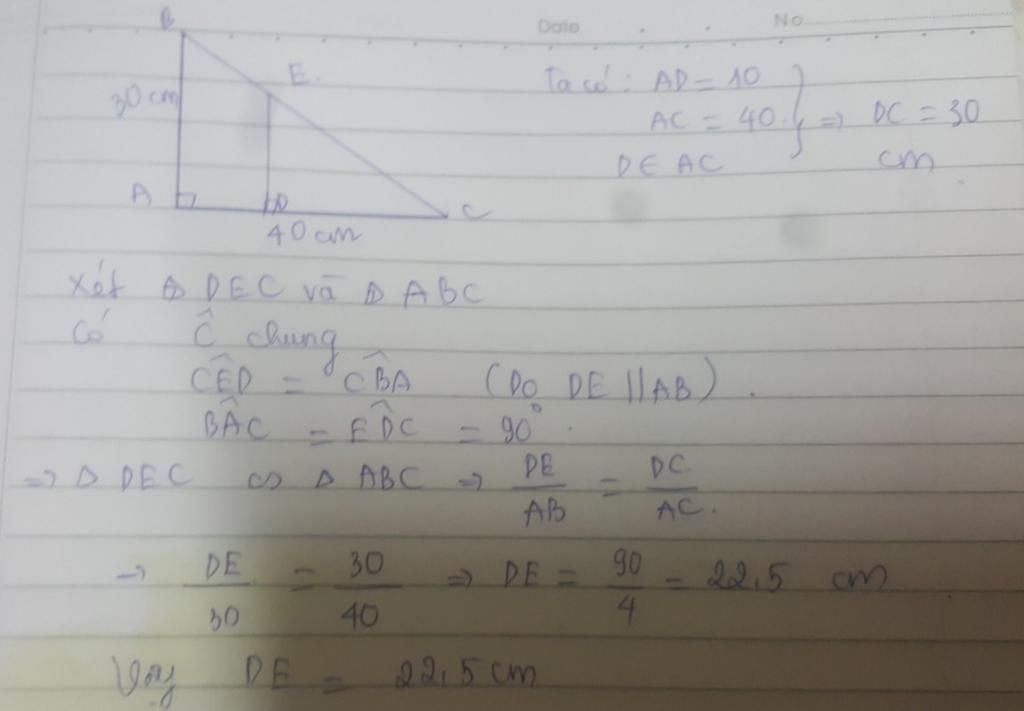 Date No
B
E.
30 cm
A
D
C
40 cm
Ta có: AD = 10
AC = 40. } => DC = 30
D E AC cm
Xét Δ DEC và Δ ABC
Có Ĉ chung
CÊD = CB̂A (Do DE // AB).
BÂC = ED̂C = 90°.
=> Δ DEC ∽ Δ ABC => DE/AB = DC/AC.
→ DE/30 = 30/40 => DE = 90/4 = 22,5 cm
Vậy DE = 22,5 cm